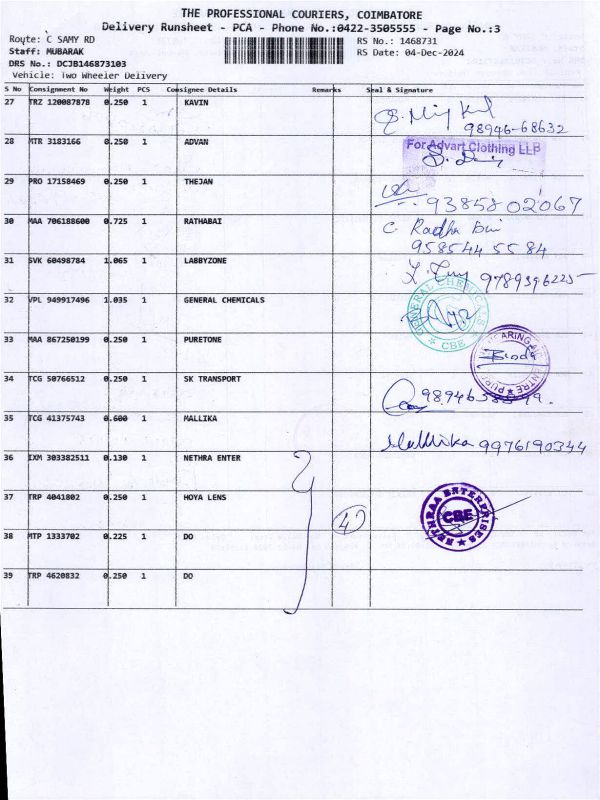 THE PROFESSIONAL COURIERS, COIMBATORE
Delivery Runsheet - PCA - Phone No.:0422-3505555 - Page No.:3
Route: C SAMY RD
RS No.: 1468731
Staff: MUBARAK
RS Date: 04-Dec-2024
DRS No.: DCJB146873103
Vehicle: Two Wheeler Delivery
S No Consignment No Weight PCS Consignee Details Remarks Seal & Signature
27 TRZ 120087878 0.250 1 KAVIN
98946-68632
28 MTR 3183166 0.250 1 ADVAN
For Advart Clothing LLP
29 PRO 17158469 0.250 1 THEJAN
9385802067
30 MAA 706188600 0.725 1 RATHABAI
C Radha Bai
9585445584
31 SVK 60498784 1.065 1 LABBYZONE
9789596225
32 VPL 949917496 1.035 1 GENERAL CHEMICALS
GENERAL CHEMICALS
CBE
33 MAA 867250199 0.250 1 PURETONE
34 TCG 50766512 0.250 1 SK TRANSPORT
35 TCG 41375743 0.600 1 MALLIKA
Mallika 9976190344
36 IXM 303382511 0.130 1 NETHRA ENTER
37 TRP 4041802 0.250 1 HOYA LENS
4
NETHRAA ENTERPRISES
CBE
38 MTP 1333702 0.225 1 DO
39 TRP 4620832 0.250 1 DO